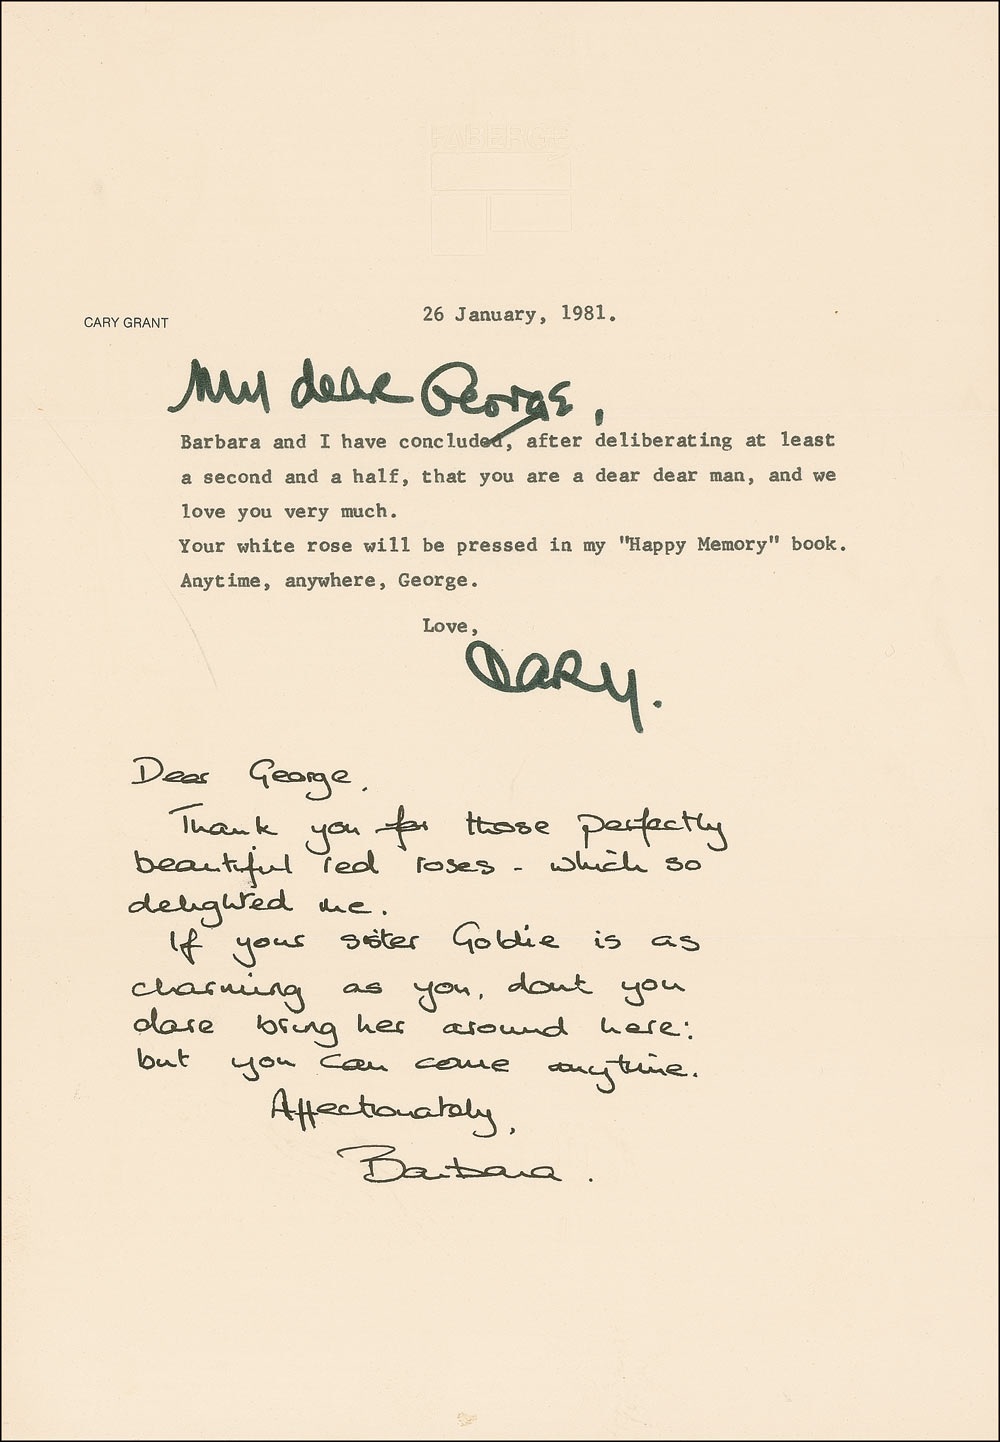 FABERGÉ
26 January, 1981.
CARY GRANT
My dear George,
Barbara and I have concluded, after deliberating at least
a second and a half, that you are a dear dear man, and we
love you very much.
Your white rose will be pressed in my "Happy Memory" book.
Anytime, anywhere, George.
Love,
CARY.
Dear George,
Thank you for those perfectly
beautiful red roses - which so
delighted me.
If your sister Goldie is as
charming as you, dont you
dare bring her around here:
but you can come anytime.
Affectionately,
Barbara.